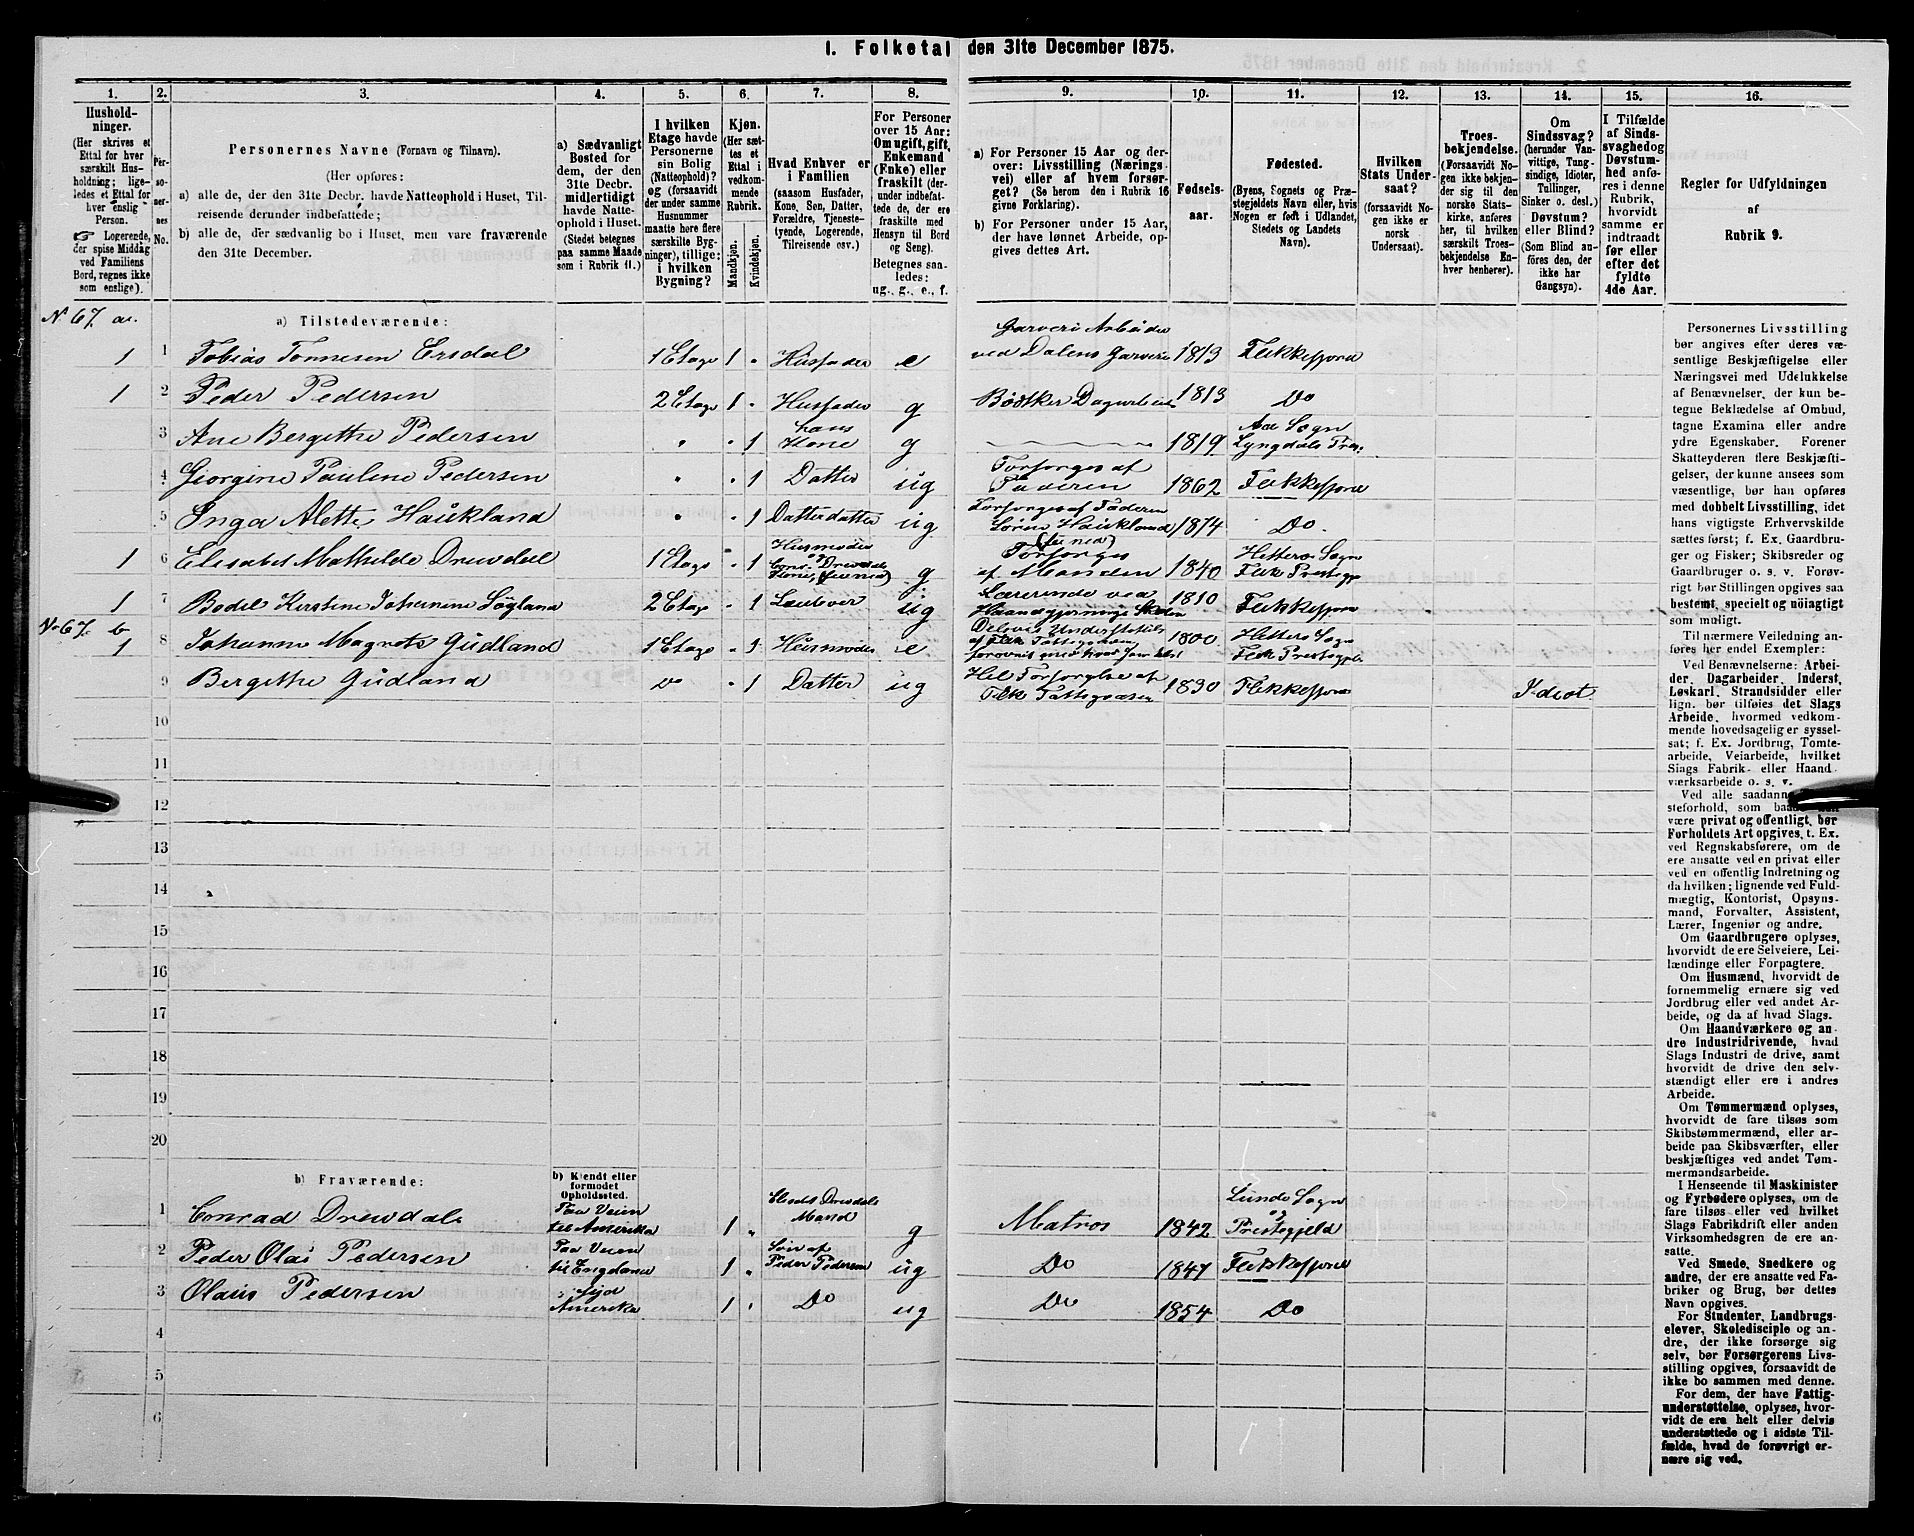 1. Folketal den 31te December 1875.
1. 2. 3. 4. 5. 6. 7. 8. 9. 10. 11. 12. 13. 14. 15. 16.
Hushold-
ninger.
(Her skrives et
Ettal for hver
særskilt Hus-
holdning; lige-
ledes et Ettal for
hver enslig
Person.
☞ Logerende,
der spise Middag
ved Familiens
Bord, regnes ikke
som enslige).
Per-
so-
ner-
nes
No.
Personernes Navne (Fornavn og Tilnavn).
(Her opføres:
a) alle de, der den 31te Decbr. havde Natteophold i Huset, Til-
reisende derunder indbefattede;
b) alle de, der sædvanlig bo i Huset, men vare fraværende
den 31te December.
a) Sædvanligt
Bosted for
dem, der den
31te Decbr.
midlertidigt
havde Natte-
ophold i Huset.
(Stedet betegnes
paa samme Maade
som i Rubrik 11.)
I hvilken
Etage havde
Personerne
sin Bolig
(Natteophold)?
og (forsaavidt
der under samme
Husnummer
maatte høre flere
særskilte Byg-
ninger), tillige:
i hvilken
Bygning?
Kjøn.
(Her sæt-
tes et
Ettal i
vedkom-
mende
Rubrik.
Mandkjøn.
Kvindekjøn.
Hvad Enhver er
i Familien
(saasom Husfader,
Kone, Søn, Datter,
Forældre, Tjeneste-
tyende, Logerende,
Tilreisende osv.)
For Personer
over 15 Aar:
Om ugift, gift,
Enkemand
(Enke) eller
fraskilt (der-
under indbefat-
tede de, der ere
fraskilte med
Hensyn til Bord
og Seng).
Betegnes saa-
ledes:
ug., g., e., f.
a) For Personer 15 Aar og der-
over: Livsstilling (Nærings-
vei) eller af hvem forsør-
get? (Se herom den i Rubrik 16
givne Forklaring).
b) For Personer under 15 Aar,
der have lønnet Arbeide, op-
gives dettes Art.
Fødsels-
aar.
Fødested.
(Byens, Sognets og Præ-
stegjeldets Navn eller, hvis
Nogen er født i Udlandet,
Stedets og Landets
Navn).
Hvilken
Stats Under-
saat?
(forsaavidt No-
gen ikke er
norsk
Undersaat).
Troes-
bekjendelse.
(Forsaavidt No-
gen ikke bekjen-
der sig til den
norske Stats-
kirke, anføres
her, til hvilken
særskilt Troes-
bekjendelse En-
hver henhører).
Om
Sindssvag?
(herunder Van-
vittige, Tung-
sindige, Idioter,
Tullinger,
Sinker o. desl.)
Døvstum?
eller Blind?
(Som Blind an-
føres den, der
ikke har
Gangsyn).
I Tilfælde
af Sinds-
svaghed og
Døvstum-
hed anfø-
res i denne
Rubrik,
hvorvidt
samme er
indtraadt
før eller
efter det
fyldte
4de Aar.
Regler for Udfyldningen
af
Rubrik 9.
N 67. a.
a) Tilstedeværende:
1 1 Tobias Tonnesen Ersdal 1 Etage 1 " Husfader e Garveri Arbeider ved Dalens Garveri 1813 Flekkefjord
1 2 Peder Pedersen 2 Etage 1 " Husfader g Bödtker Dagarbeid 1813 Do
3 Ane Bergitthe Pedersen " " 1 hans Kone g 1819 Aa Sogn Lyngdals Pres:
4 Giorgine Pauline Pedersen " " 1 Datter ug Forsörges af Faderen 1862 Flekkefjord
5 Inga Alette Haukland " " 1 Datterdatter ug Forsörges af Faderen Sören Haukland (fra ned) 1874 Do.
1 6 Elisabet Mathilde Drewdal 1 Etage " 1 Husmoder og Conr. Drewdals Kone g Forsörges af Manden 1840 Hetterö Sogn Flek Prestegj
1 7 Bodil Kerstine Johannine Sögland 2 Etage " 1 ug Lærerinde ved Haandgjernings Skolen 1810 Flekkefjord
No 67. b
1 8 Johanne Magrete Gudland 1 Etage " 1 Husmoder e Delvis Understöttes af Flek Fattigvæsen 1800 Hetterö Sogn Flek Prestegjel
9 Bergitthe Gudland Do " 1 Datter ug Hel Forsörgelse af Flek Fattigvæsen 1830 Flekkefjord Idiot.
10
11
12
13
14
15
16
17
18
19
20
b) Fraværende:
b) Kjendt eller
formodet
Opholdssted.
1 Conrad Drewdal Paa Veien til Amerika 1 " Elisabts Drewdals Mand g Matros 1842 Lunde Sogn og Prestegjeld
2 Peder Olai Pedersen Paa Veien til Engeland 1 " Sön af Peder Pedersen ug Do 1847 Flekkefjord
3 Olaus Pedersen i Syd Amerika 1 " Do ug Do 1854 Do
4
5
6
Personernes Livsstilling
bør angives efter deres væ-
sentlige Beskjæftigelse eller
Næringsvei med Udelukkelse
af Benævnelser, der kun be-
tegne Beklædelse af Ombud,
tagne Examina eller andre
ydre Egenskaber. Forener
Skatteyderen flere Beskjæfti-
gelser, der kunne ansees som
væsentlige, bør han opføres
med dobbelt Livsstilling, idet
hans vigtigste Erhvervskilde
sættes først; f. Ex. Gaardbru-
ger og Fisker; Skibsreder og
Gaardbruger o. s. v. Forøv-
rigt bør Stillingen opgives saa
bestemt, specielt og nöiagtigt
som muligt.
Til nærmere Veiledning an-
føres her endel Exempler:
Ved Benævnelserne: Arbei-
der, Dagarbeider, Inderst,
Løskarl, Strandsidder eller
lign. bør tilføies det Slags
Arbeide, hvormed vedkom-
mende hovedsagelig er syssel-
sat; f. Ex. Jordbrug, Tomte-
arbeide, Veiarbeide, hvilket
Slags Fabrik- eller Haand-
værksarbeide o. s. v.
Ved alle saadanne
steforhold, som baade kan
være privat og offentligt, bør
Forholdets Art opgives, t. Ex.
ved Regnskabsførere, om de
ere ansatte ved en privat eller
ved en offentlig Indretning og
da hvilken; lignende ved Fuld-
mægtig, Kontorist, Opsyns-
mand, Forvalter, Assistent,
Lærer, Ingeniør og andre.
Om Gaardbrugere oplyses,
hvorvidt de ere Selveiere, Lei-
lændinge eller Forpagtere.
Om Husmænd, hvorvidt de
fornemmelig ernære sig ved
Jordbrug eller ved andet Ar-
beide, og da af hvad Slags.
Om Haandværkere og an-
dre Industridrivende, hvad
Slags Industri de drive, samt
hvorvidt de drive den selv-
stændigt eller ere i andres
Arbeide.
Om Tømmermænd oplyses,
hvorvidt de fare tilsøs som
Skibstømmermænd, eller ar-
beide paa Skibsværfter, eller
beskjæftiges ved andet Tøm-
mermandsarbeide.
I Henseende til Maskinister
og Fyrbødere oplyses, om de
fare tilsøs eller ved hvilket
Slags Fabrikdrift eller anden
Virksomhedsgren de ere an-
satte.
Ved Smede, Snedkere og
andre, der ere ansatte ved Fa-
briker og Brug, bør dettes
Navn opgives.
For Studenter, Landbrugs-
elever, Skoledisciple og an-
dre, der ikke forsørge sig
selv, bør Forsørgerens Livs-
stilling opgives, forsaavidt de
ikke bo sammen med denne.
For dem, der have Fattig-
understøttelse, oplyses, hvor-
vidt de era helt eller delvis
understøttede og i sidste Til-
fælde, hvad de forøvrigt er-
nære sig ved.